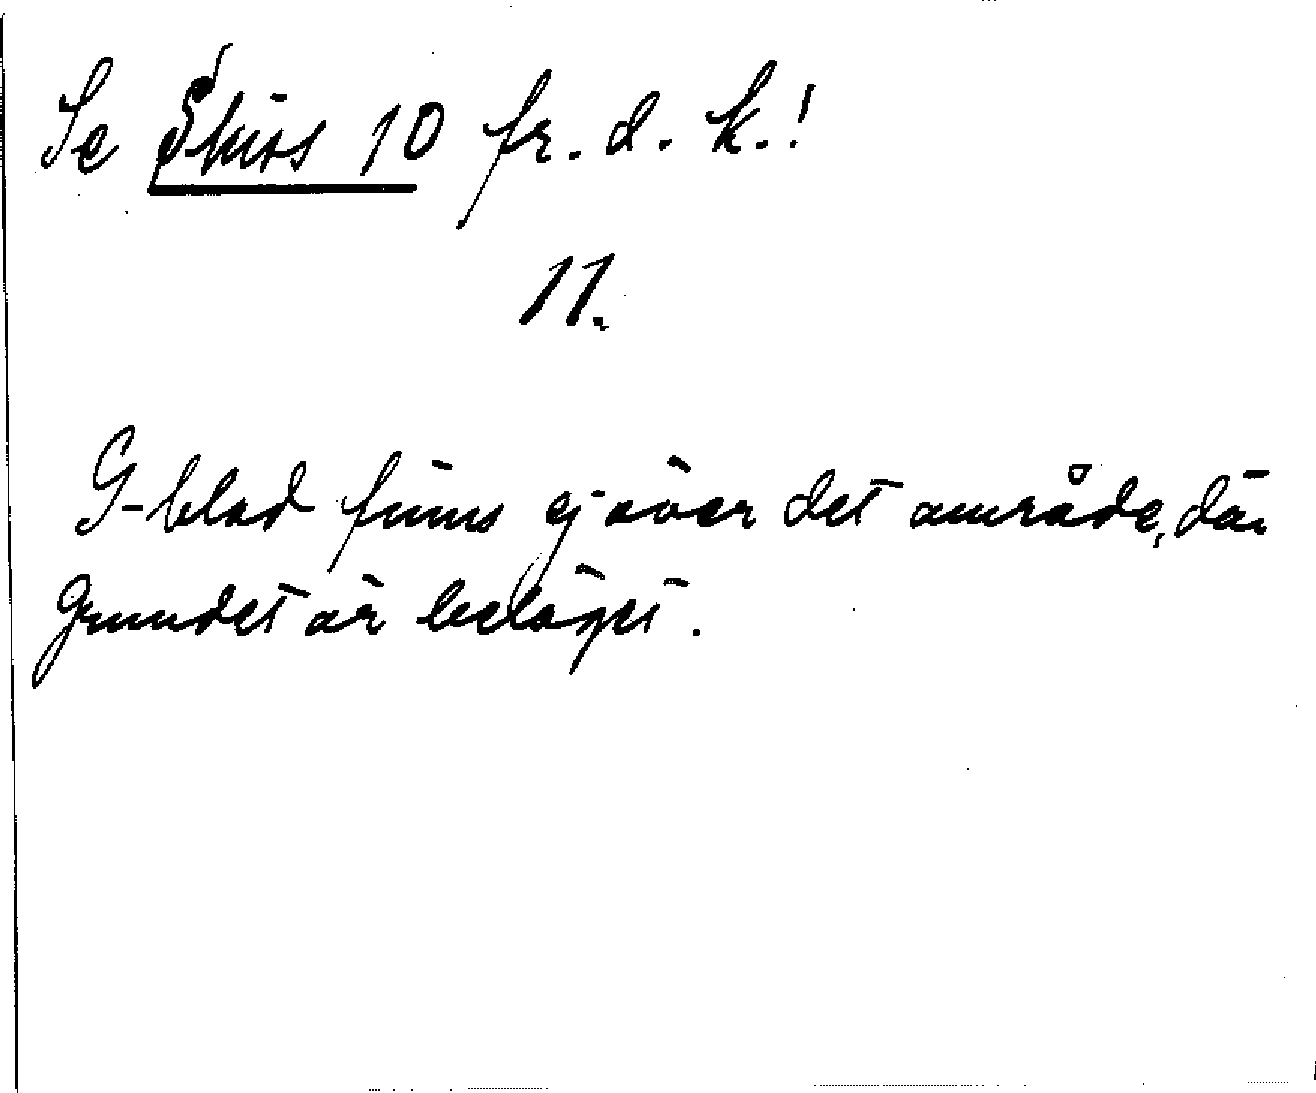 Se Skirs 10 fr. d. k.!
11.
G-blad finns ej över det område, där
grundet är beläget.